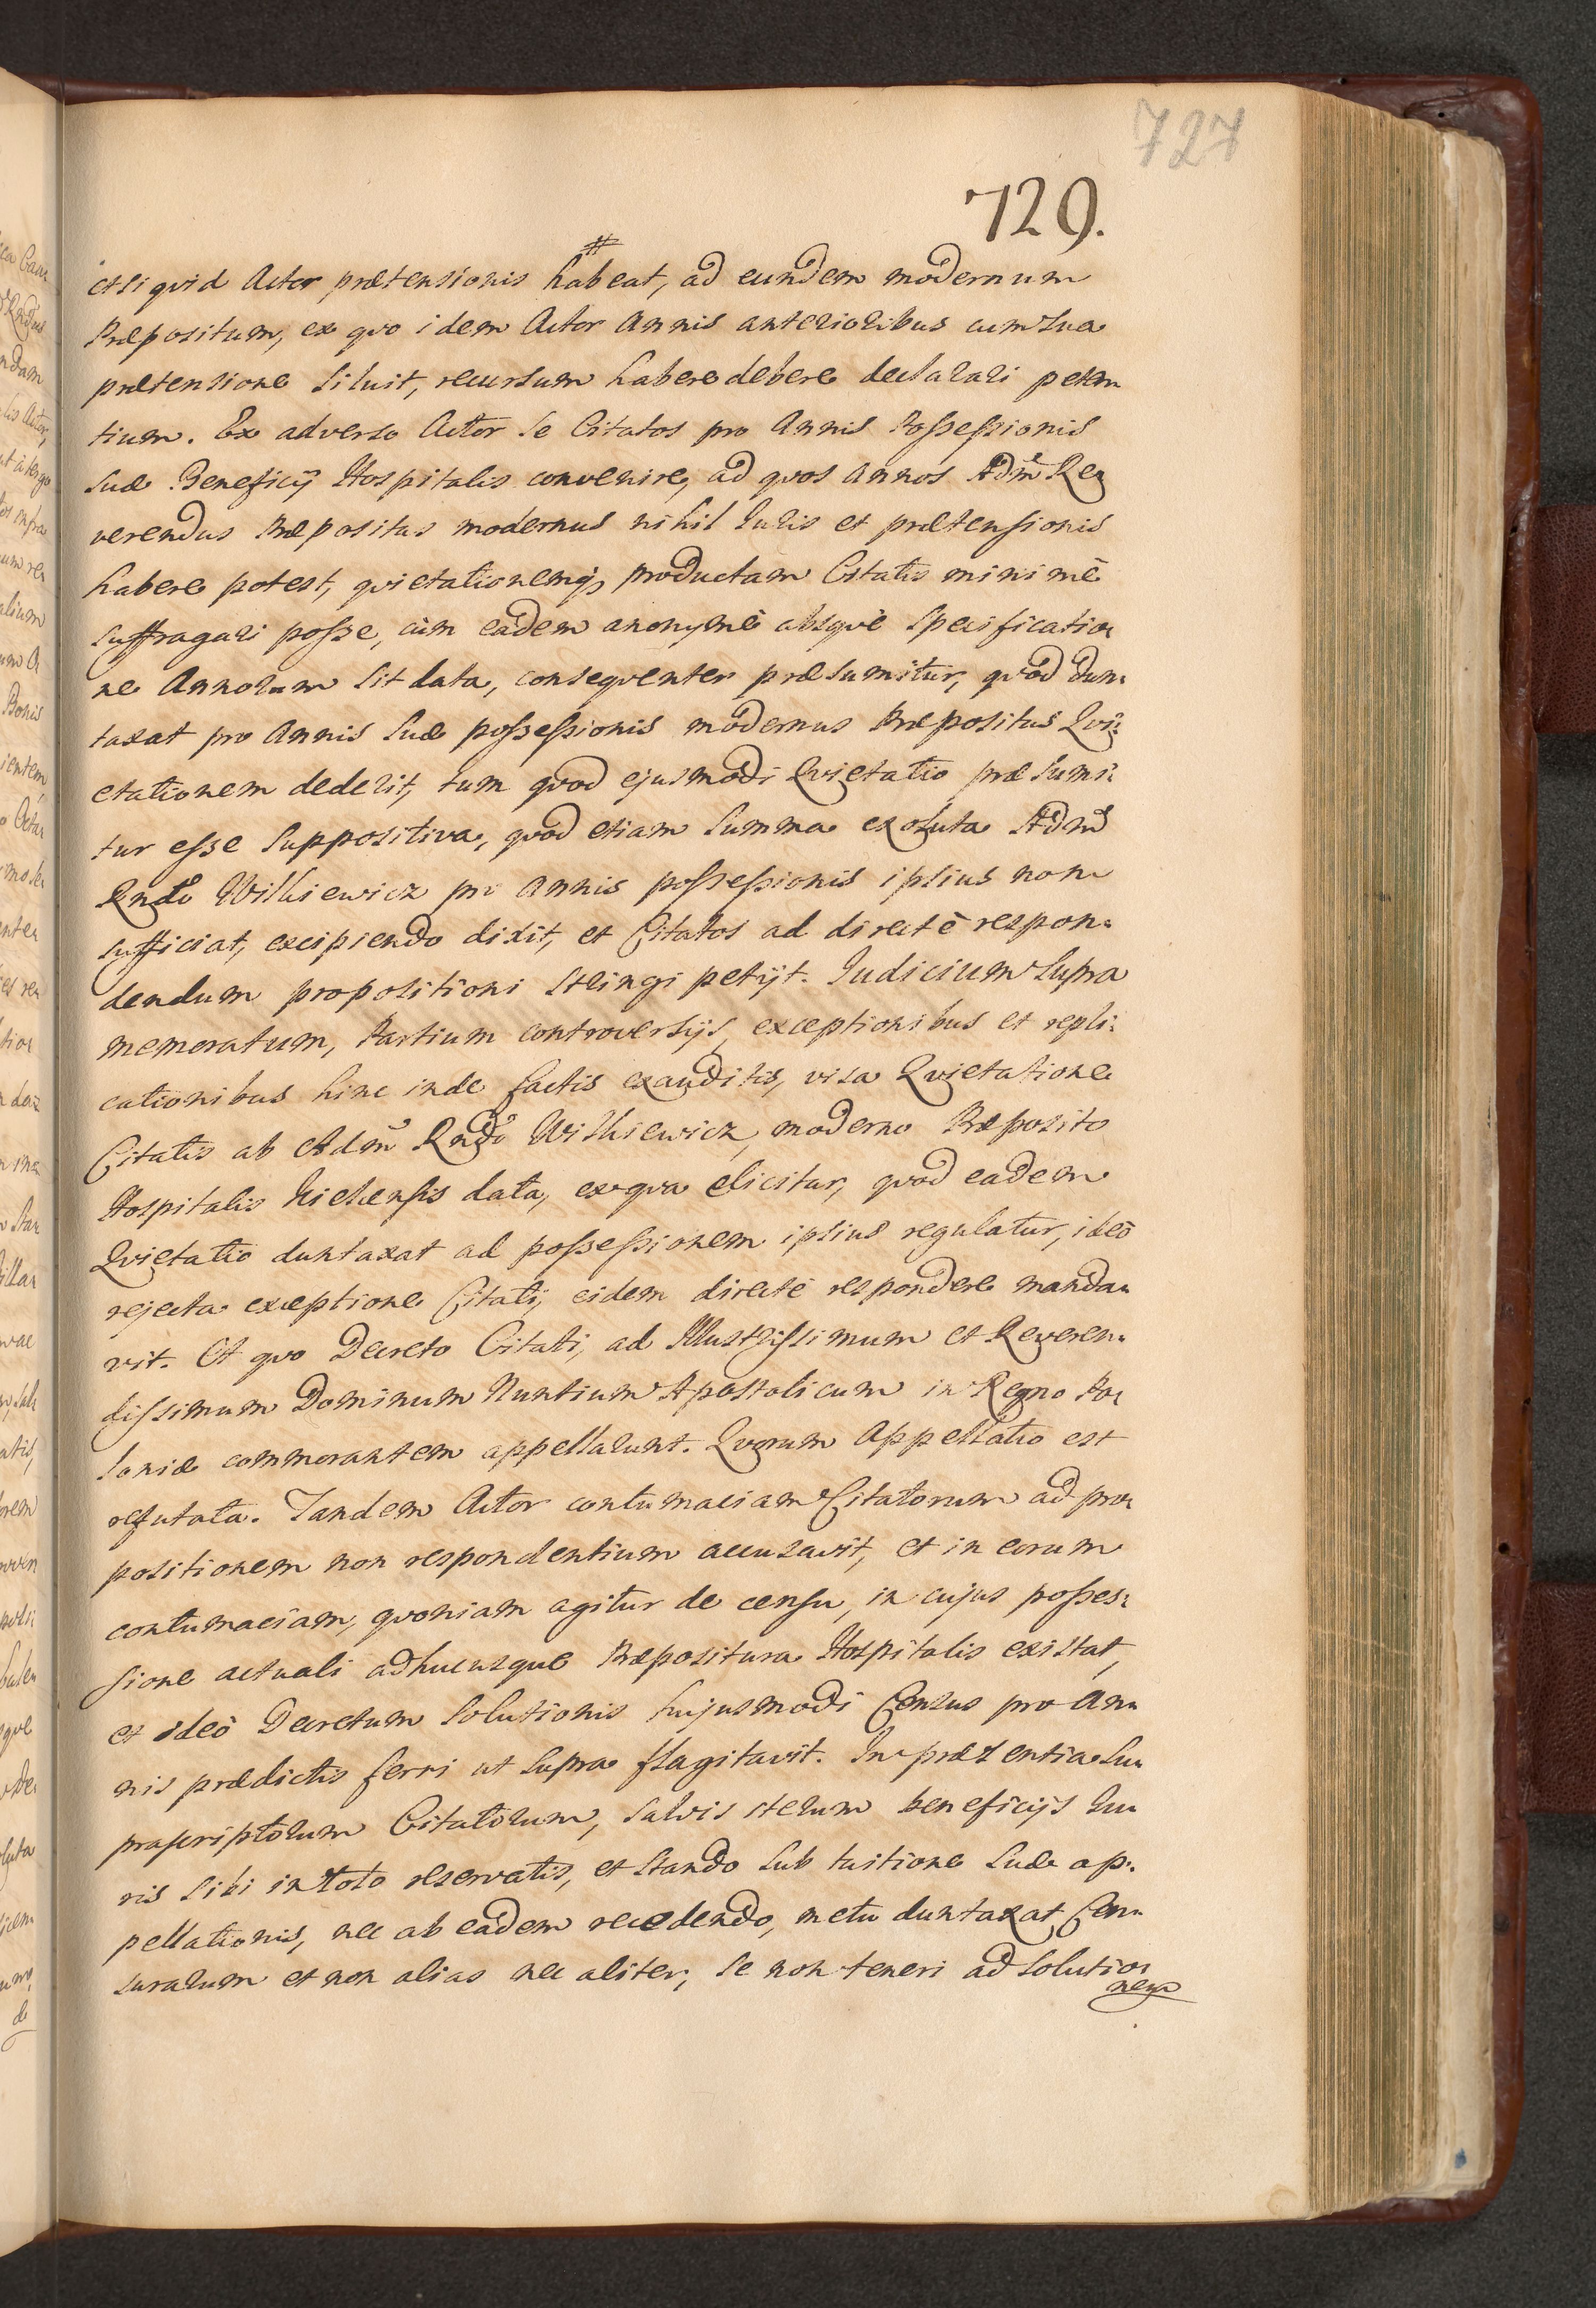 727
729.
#
et si quid Actor prætensionis habeat, ad eundem modernum
Præpositum, ex quo idem Actor Annis anterioribus cum sua
prætensione siluit, recursum habere debere declarari peten„
tium. Ex adverso Actor se Citatos pro Annis Possessionis
suæ Beneficij Hospitalis convenire, ad quos annos Adm Re„
verendus Præpositus modernus nihil Iuris et prætensionis
habere potest, quietationemq; productam Citatis minimè
suffragari posse, cùm eadem anonymè absquè specificatio„
ne Annorum sit data, consequenter præsumitur, quòd dun„
taxat pro Annis suæ possessionis modernus Præpositus Qui„
etationem dederit, tum quod ejusmodi Quietatio præsumi„
tur esse suppositiva, quod etiam summa exoluta Admo
Rndo Wilkiewicz pro annis possessionis ipsius non
sufficiat, excipiendo dixit, et Citatos ad directè respon„
dendum propositioni stringi petijt. Iudicium supra
memoratum, Partium controversijs, exceptionibus et repli„
cationibus hinc inde factis exauditis, visa Quietatione
Citatis ab Adm Rndo Wilkiewicz, moderno Præposito
Hospitalis Kielcensis data, ex qua elicitur, quod eadem
Quietatio duntaxat ad possessionem ipsius regulatur, ideò
rejecta exceptione Citati, eidem directè respondere manda„
vit. A quo Decreto Citati, ad Illustrissimum et Reveren„
dissimum Dominum Nuntium Apostolicum in Regno Po„
loniæ commorantem appellarunt. Quorum Appellatio est
refutata. Tandem Actor contumaciam Citatorum ad pro„
positionem non respondentium accusavit, et in eorum
contumaciam, quoniam agitur de censu, in cujus posses„
sione actuali adhucusque Præpositura Hospitalis existat,
et ideò Decretum solutionis hujusmodi Census pro An„
nis prædictis ferri ut supra flagitavit. In præsentia su„
prascriptorum Citatorum, salvis iterum beneficijs Iu„
ris sibi in toto reservatis, et stando sub tuitione suæ ap„
pellationis, nec ab eadem recedendo, metu duntaxat Cen„
surarum et non alias nec aliter, se non teneri ad solutio„
nem